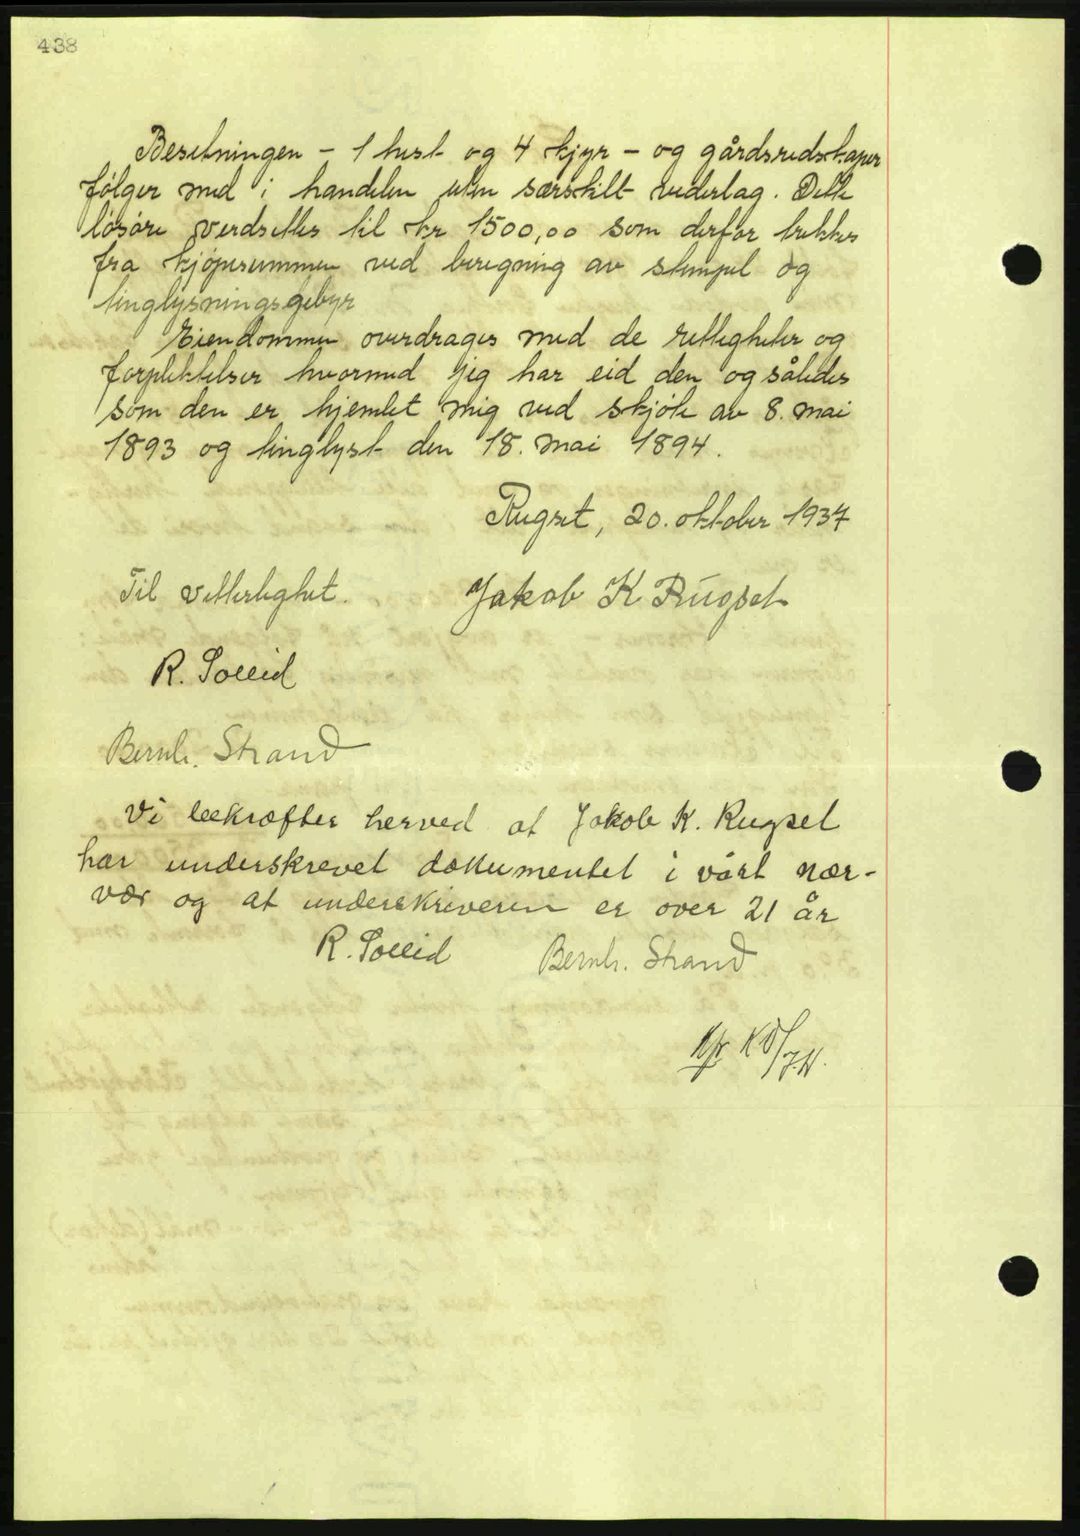 438
Besetningen - 1 hest og 4 kjyr - og gårdsredskaper
følger med i handelen uten særskilt vederlag. Dette
løsøre verdsettes til kr 1500,00 som derfor trekkes
fra kjøpesummen ved beregning av stempel og
tinglysningsgebyr
Eiendommen overdrages med de rettigheter og
forpliktelser hvormed jeg har eid den og således
som den er hjemlet mig ved skjøte av 8. mai
1893 og tinglyst den 18. mai 1894.
Rugset, 20. oktober 1937
Til vitterlighet. Jakob K Rugset
R. Solleid
Bernh. Strand
Vi bekræfter herved at Jakob K. Rugset
har underskrevet dokumentet i vårt nær-
vær og at underskriveren er over 21 år
R. Solleid Bernh. Strand